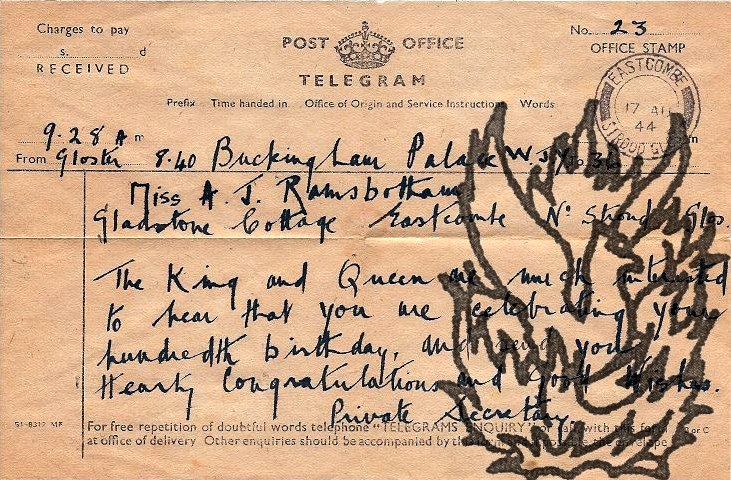 Charges to pay
s. d
RECEIVED
POST OFFICE
TELEGRAM
No. 23
OFFICE STAMP
EASTCOMBE
17 AU
44
STROUD GL
Prefix Time handed in. Office of Origin and Service Instructions Words
9.28 A m
From Gloster 8.40 Buckingham Palace W
Miss A. J. Ramsbotham
Gladstone Cottage Eastcombe Nr Stroud Glos.
The King and Queen are much interested
to hear that you are celebrating your
hundredth birthday, and send you
Hearty Congratulations and Good Wishes.
Private Secretary
51-8312 MF
For free repetition of doubtful words telephone "TELEGRAMS ENQUIRY" or call, with this form
at office of delivery Other enquiries should be accompanied by this form and, the envelope
B or C